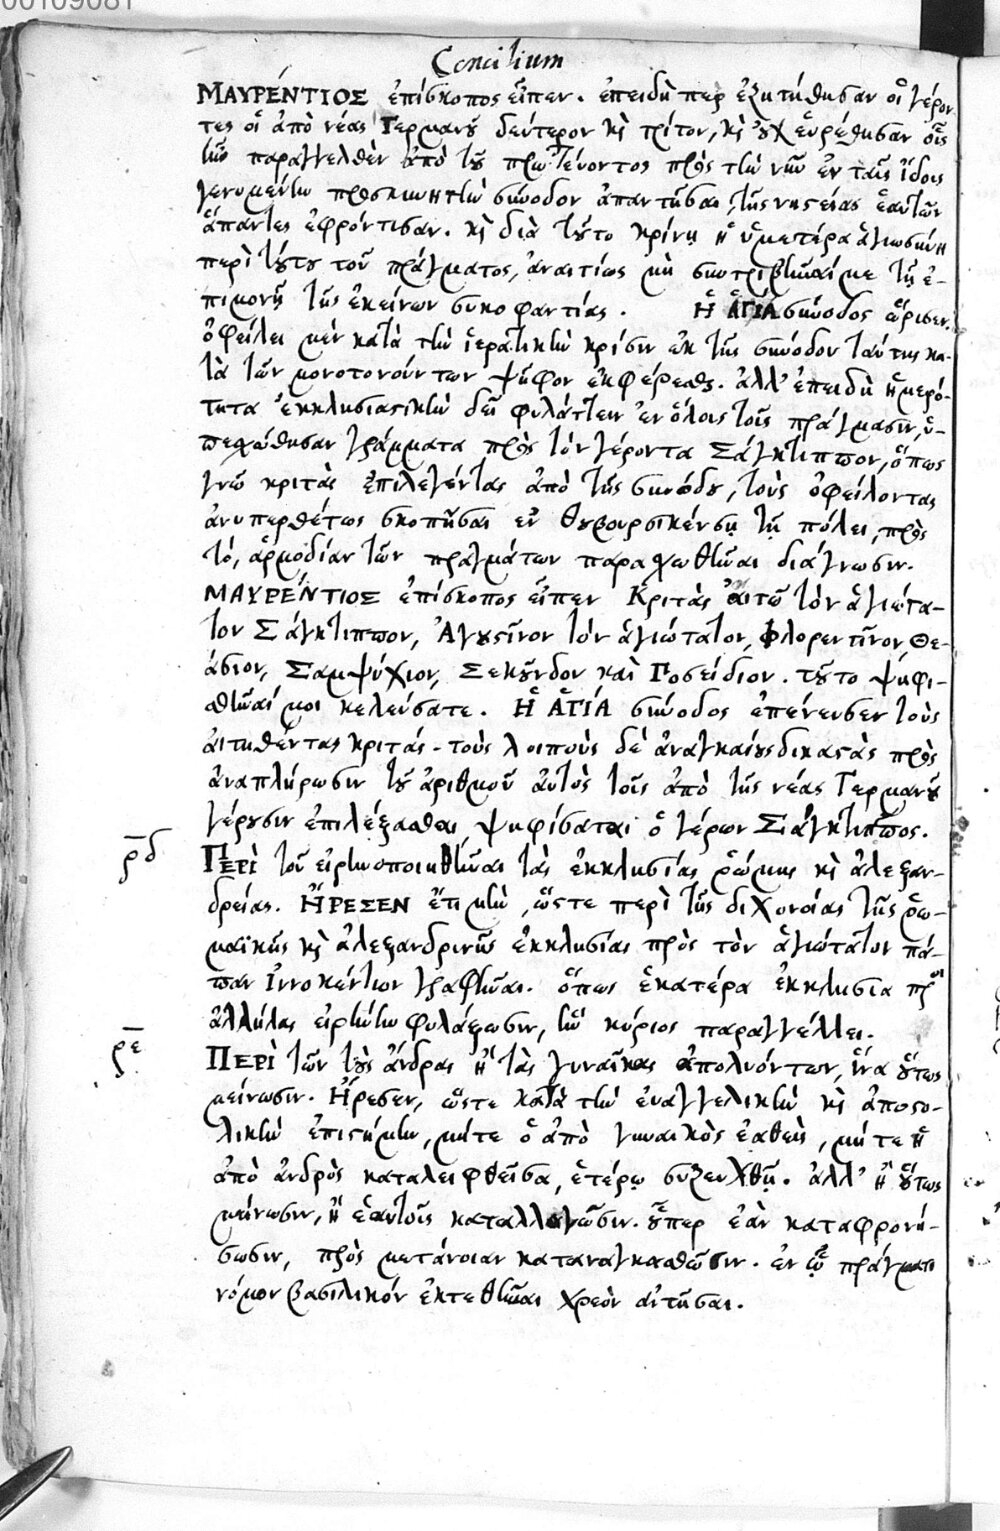 00109081
Concilium
ΜΑΥΡΕΝΤΙΟΣ ἐπίσκοπος εἶπεν. ἐπειδή περ ἐξητήθησαν οἱ γέρον-
τες οἱ ἀπὸ νέας Γερμανοῦ δεύτερον καὶ τρίτον, καὶ οὐχ εὑρέθησαν οἷς
ἦν παραγγελθὲν ἀπὸ τοῦ πρωτεύοντος πρὸς τὴν νῦν ἐν ταῖς ἴδοις
γενομένην προσκυνητὴν σύνοδον ἀπαντῆσαι, τῆς νηστείας ἑαυτῶν
ἅπαντες ἐφρόντισαν. καὶ διὰ τοῦτο κρίνῃ ἡ ὑμετέρα ἁγιωσύνη
περὶ τούτου τοῦ πράγματος, ἀναιτίως μὴ συντριβῆναί με τῇ ἐ-
πιμονῇ τῆς ἐκείνων συκοφαντίας. Ἡ ἉΓΙΑ σύνοδος ὥρισεν.
ὀφείλει μὲν κατὰ τὴν ἱερατικὴν κρίσιν ἐκ τῆς συνόδου ταύτης κα-
τὰ τῶν μονοτονούντων ψῆφον ἐκφέρεσθαι. ἀλλ' ἐπειδὴ ἡμερό-
τητα ἐκκλησιαστικὴν δεῖ φυλάττειν ἐν ὅλοις τοῖς πράγμασιν, ὑ-
πεχώθησαν γράμματα πρὸς τὸν γέροντα Σάγκτιππον, ὅπως
γνῷ κριτὰς ἐπιλεγέντας ἀπὸ τῆς συνόδου, τοὺς ὀφείλοντας
ἀνυπερθέτως σκοπῆσαι ἐν Θουβουρσικένσῃ τῇ πόλει, πρὸς
τὸ, ἁρμοδίαν τῶν πραγμάτων παραχωθῆναι διάγνωσιν.
ΜΑΥΡΕΝΤΙΟΣ ἐπίσκοπος εἶπεν Κριτὰς αἰτῶ τὸν ἁγιώτα-
τον Σάγκτιππον, Ἀγουστῖνον τὸν ἁγιώτατον, Φλορεντῖνον, Θε-
άσιον, Σαμψύχιον, Σεκοῦνδον καὶ Ποσείδιον. τοῦτο ψηφι-
σθῆναί μοι κελεύσατε. Ἡ ἉΓΙΑ σύνοδος ἐπένευσεν τοὺς
αἰτηθέντας κριτάς. τοὺς λοιποὺς δὲ ἀναγκαίους δικαστὰς πρὸς
ἀναπλήρωσιν τοῦ ἀριθμοῦ αὐτὸς τοῖς ἀπὸ τῆς νέας Γερμανοῦ
γέρουσιν ἐπιλέξασθαι ψηφίσαται ὁ γέρων Σιάγκτιππος.
ρδ ΠΕΡΙ τοῦ εἰρηνοποιηθῆναι τὰς ἐκκλησίας ῥώμης καὶ ἀλεξαν-
δρείας. ἬΡΕΣΕΝ ἔτι μὴν, ὥστε περὶ τῆς διχονοίας τῆς ῥω-
μαϊκῆς καὶ ἀλεξανδρινῆς ἐκκλησίας πρὸς τὸν ἁγιώτατον πά-
παν Ἰννοκέντιον γραφῆναι. ὅπως ἑκατέρα ἐκκλησία πρὸς
ἀλλήλας εἰρήνην φυλάξωσιν, ἣν κύριος παραγγέλλει.
ρε ΠΕΡΙ τῶν τοὺς ἄνδρας ἢ τὰς γυναῖκας ἀπολυόντων, ἵνα οὕτως
μείνωσιν. Ἤρεσεν, ὥστε κατὰ τὴν εὐαγγελικὴν καὶ ἀποστο-
λικὴν ἐπιστήμην, μήτε ὁ ἀπὸ γυναικὸς ἐαθεὶς, μήτε ἡ
ἀπὸ ἀνδρὸς καταλειφθεῖσα, ἑτέρῳ συζευχθῇ. ἀλλ' ἢ οὕτως
μείνωσιν, ἢ ἑαυτοῖς καταλλαγῶσιν. οὗπερ ἐὰν καταφρονή-
σωσιν, πρὸς μετάνοιαν καταναγκασθῶσιν. ἐν ᾧ πράγματι
νόμον βασιλικόν ἐκτεθῆναι χρεὸν αἰτῆσαι.